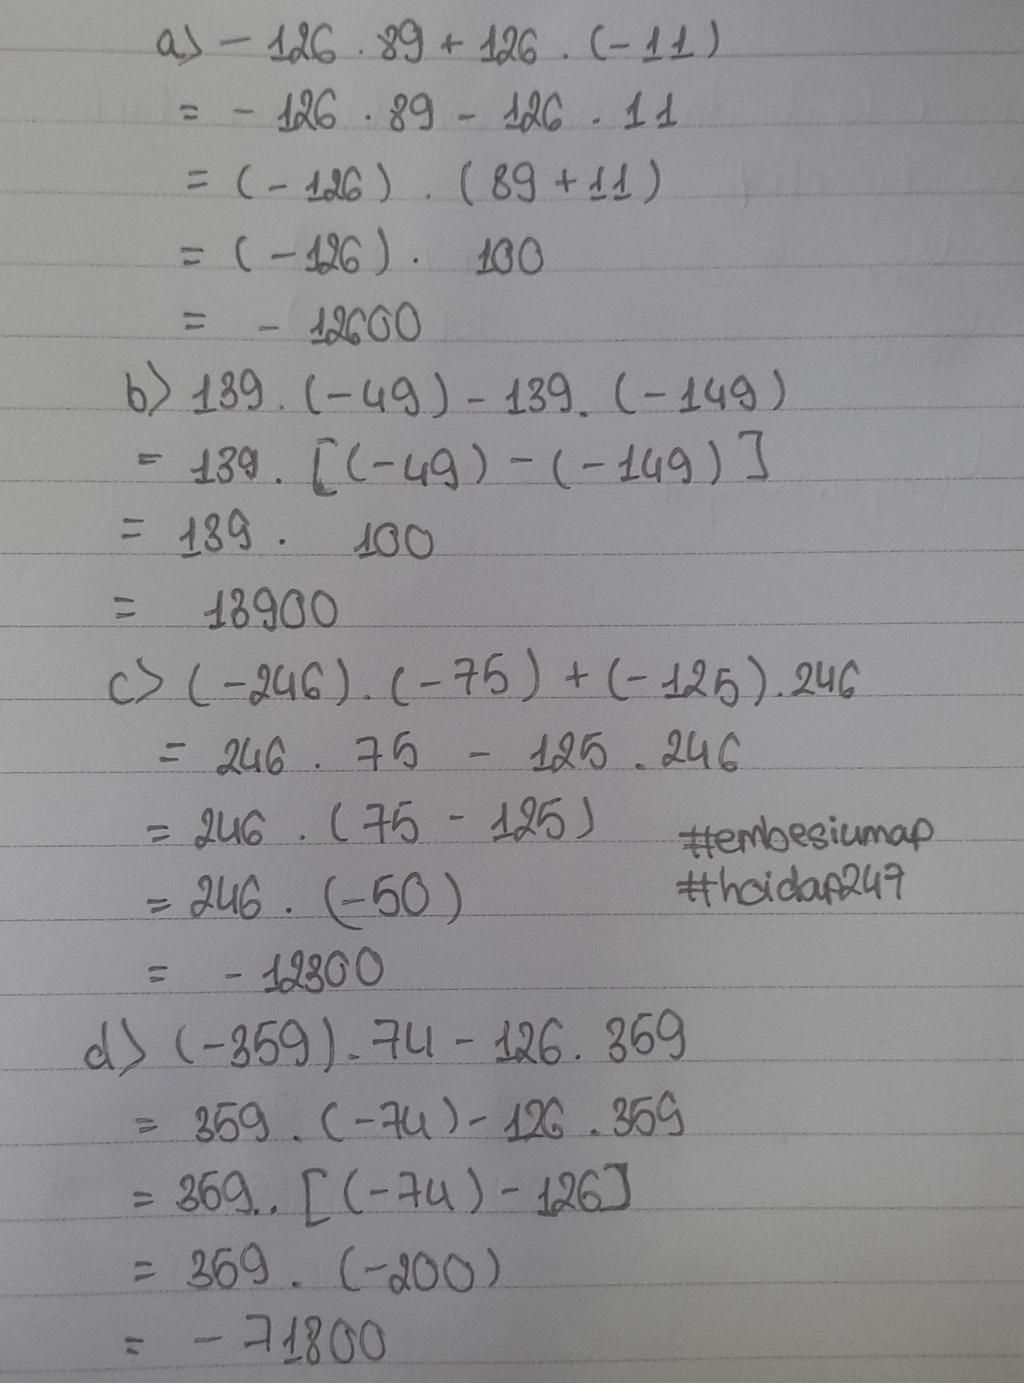 a) - 126 . 89 + 126 . (-11)
= - 126 . 89 - 126 . 11
= (-126) . (89 + 11)
= (-126) . 100
= - 12600
b) 139 . (-49) - 139 . (-149)
= 139 . [(-49) - (-149)]
= 139 . 100
= 13900
c) (-246) . (-75) + (-125) . 246
= 246 . 75 - 125 . 246
= 246 . (75 - 125)
= 246 . (-50)
= - 12300
#embesiumap
#hoidap247
d) (-359) . 74 - 126 . 359
= 359 . (-74) - 126 . 359
= 359 . . [(-74) - 126]
= 359 . (-200)
= - 71800